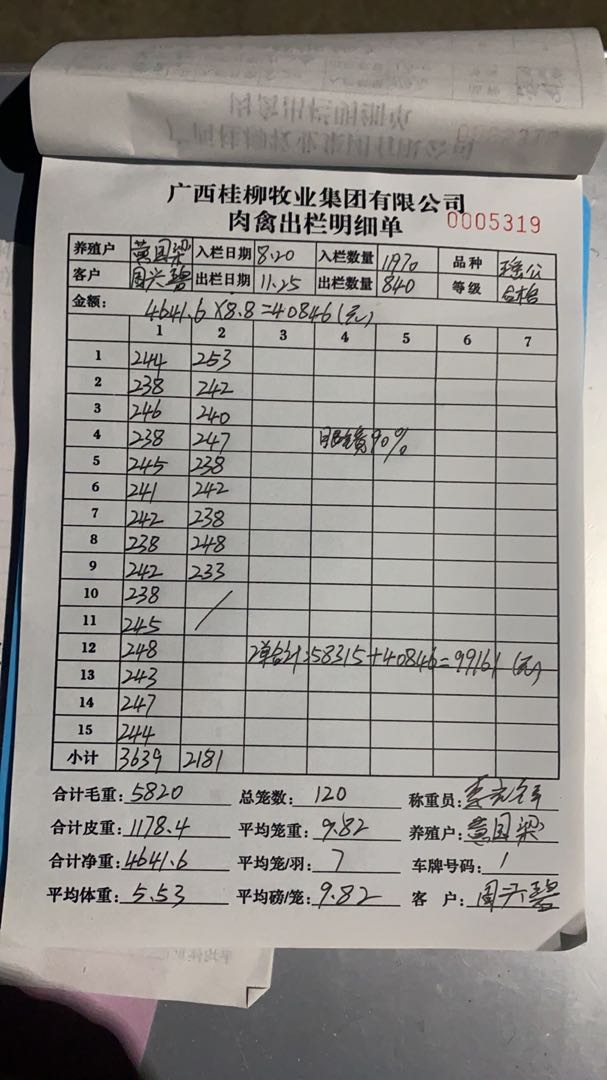 广西桂柳牧业集团有限公司
肉禽出栏明细单 0005319
养殖户 黄国梁 入栏日期 8.20 入栏数量 1197° 品种 瑶公
客户 周兴碧 出栏日期 11.25 出栏数量 840 等级 合格
金额: 4641.6×8.8=40846(元)
1 2 3 4 5 6 7
1 244 253
2 238 242
3 246 240
4 238 247 90%
5 245 238
6 241 242
7 242 238
8 238 248
9 242 233
10 238 /
11 245
12 248 2单合计:58315+40846=99161(元)
13 243
14 247
15 244
小计 3639 2181
合计毛重: 5820 总笼数: 120 称重员:
合计皮重: 1178.4 平均笼重: 9.82 养殖户: 黄国梁
合计净重: 4641.6 平均笼/羽: 7 车牌号码: 1
平均体重: 5.53 平均磅/笼: 9.82 客 户: 周兴碧